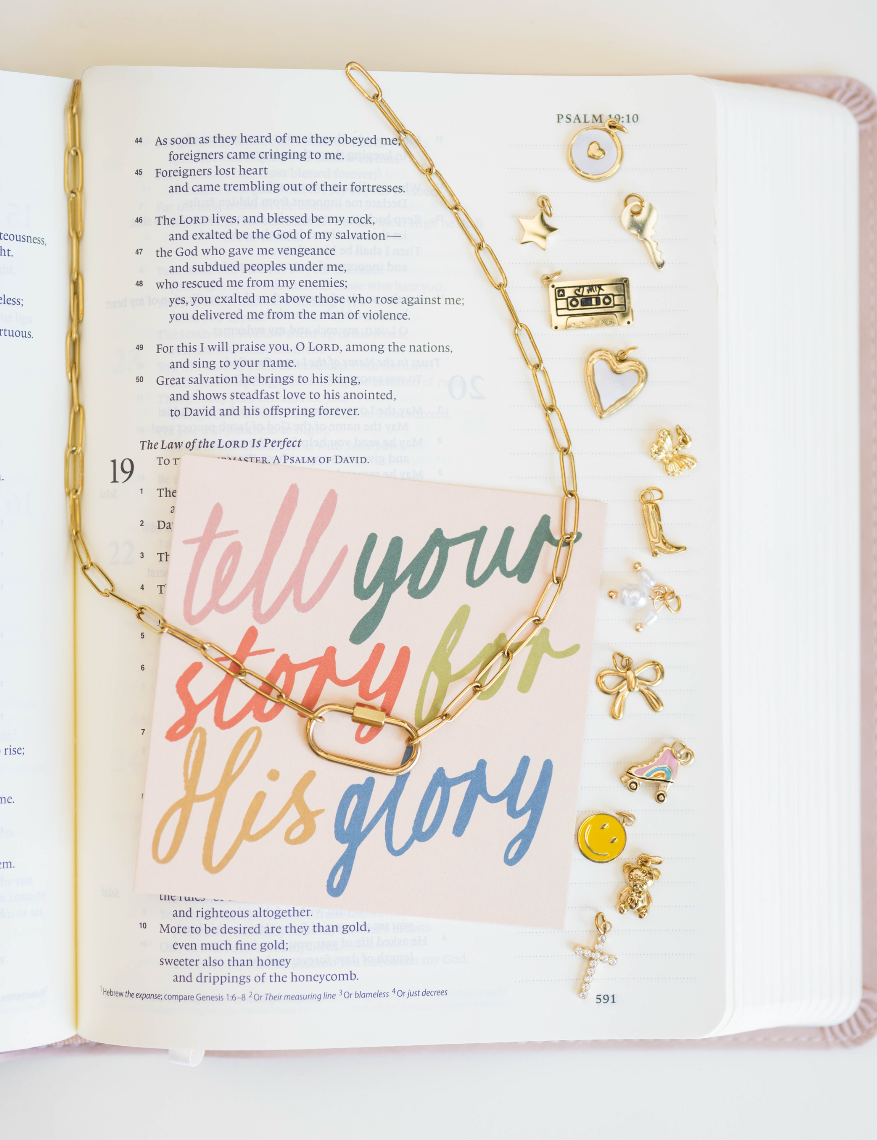 PSALM 19:10
teousness,
ht.
eless;
rtuous.
rise;
me.
em.
44 As soon as they heard of me they obeyed me;
foreigners came cringing to me.
45 Foreigners lost heart
and came trembling out of their fortresses.
46 The LORD lives, and blessed be my rock,
and exalted be the God of my salvation—
47 the God who gave me vengeance
and subdued peoples under me,
48 who rescued me from my enemies;
yes, you exalted me above those who rose against me;
you delivered me from the man of violence.
49 For this I will praise you, O LORD, among the nations,
and sing to your name.
50 Great salvation he brings to his king,
and shows steadfast love to his anointed,
to David and his offspring forever.
The Law of the LORD Is Perfect
19 To T MASTER. A PSALM OF DAVID.
1 The
2 Da
3 Th
4 T
5
6
7
tell your
story for
His glory
the rules
and righteous altogether.
10 More to be desired are they than gold,
even much fine gold;
sweeter also than honey
and drippings of the honeycomb.
1 Hebrew the expanse; compare Genesis 1:6–8 2 Or Their measuring line 3 Or blameless 4 Or just decrees
591
A MIX